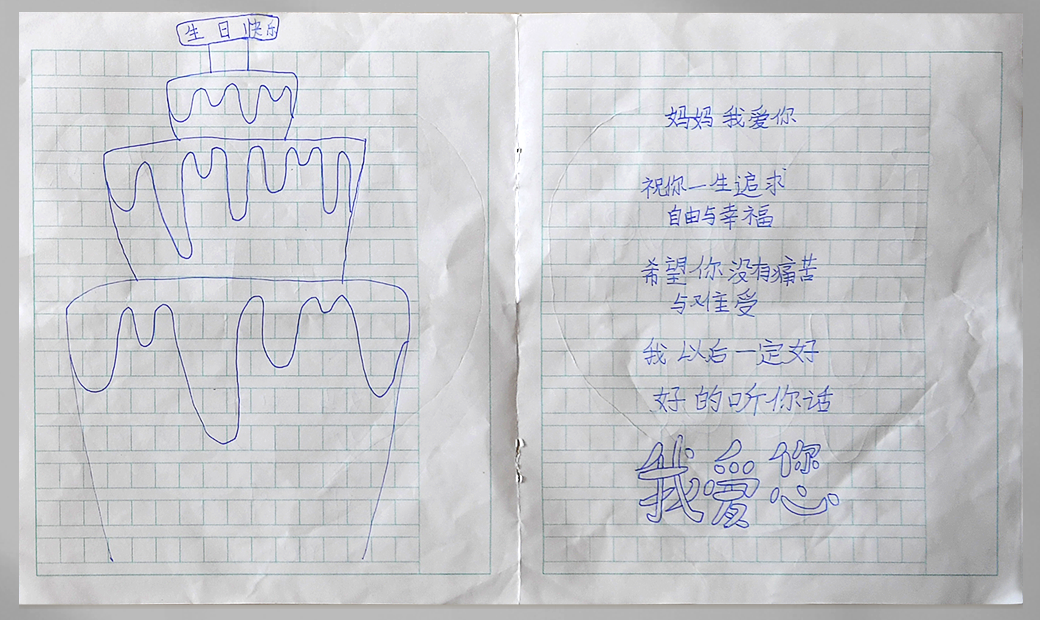 生日快乐
妈妈我爱你
祝你一生追求
自由与幸福
希望你没有痛苦
与难受
我以后一定好
好的听你话
我爱您